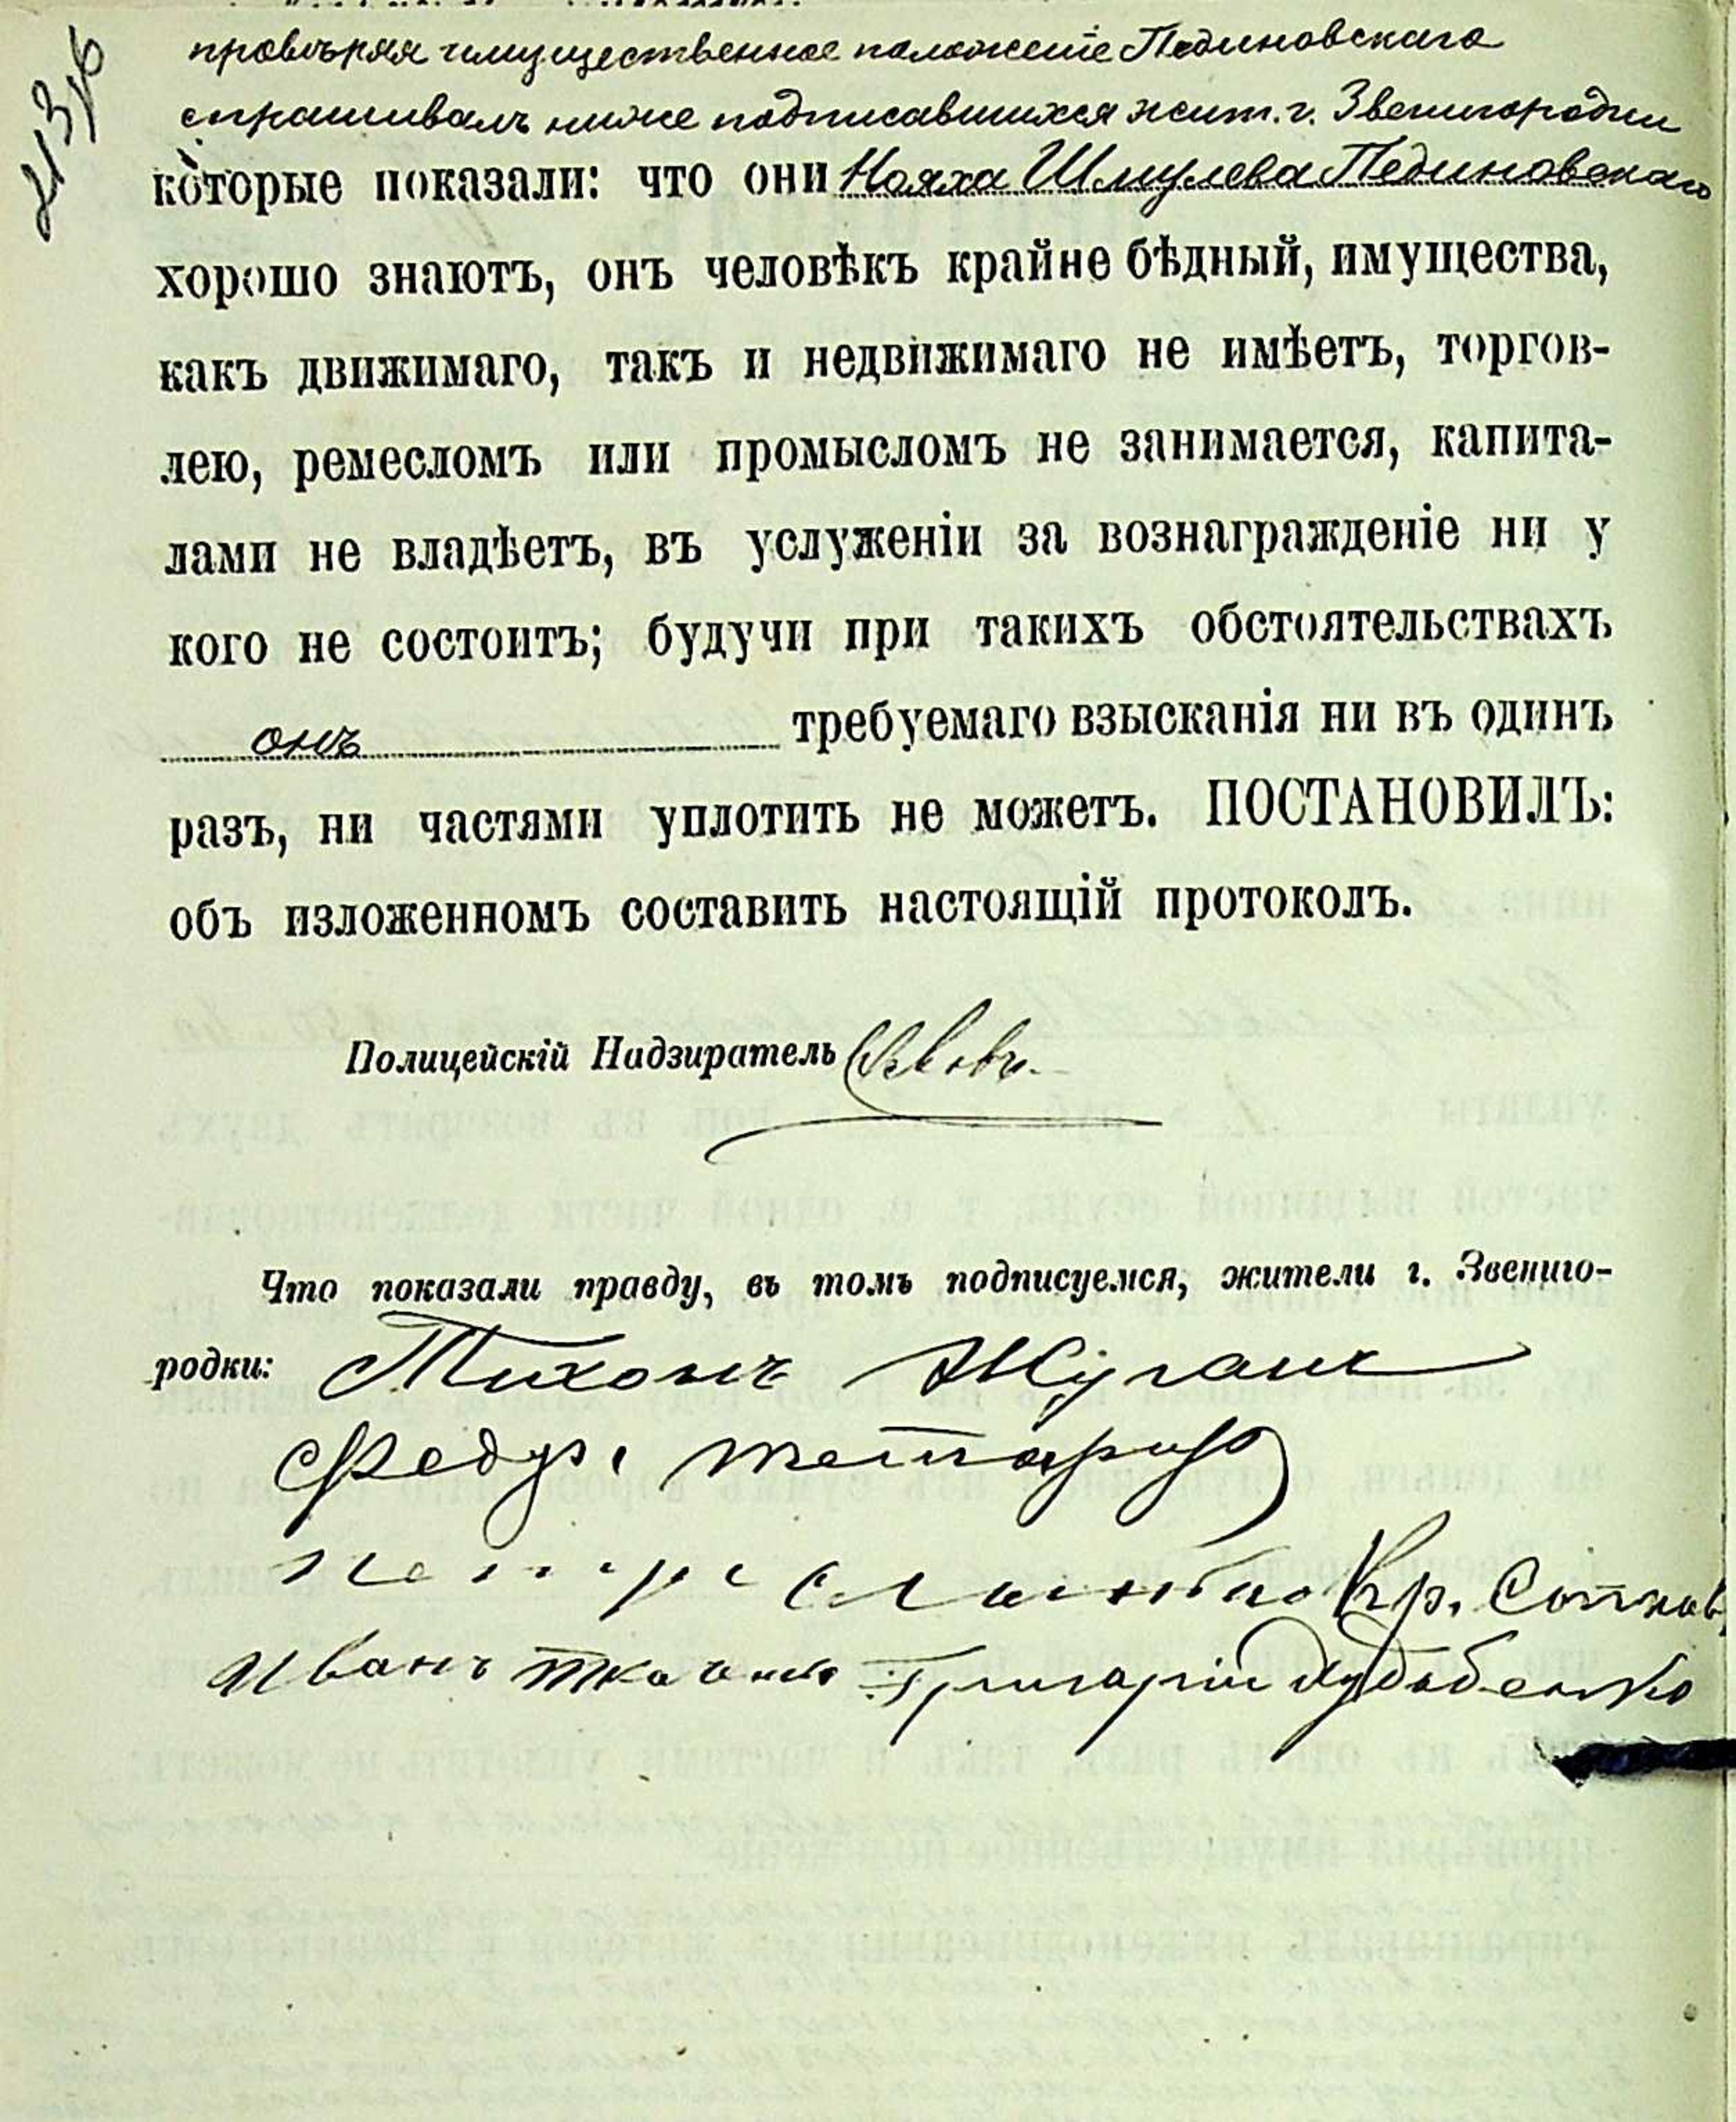 провѣряя имущественное положеніе Пединовскаго
спрашивалъ ниже подписавшихся жит. г. Звенигородки
которые показали: что они Нояха Шмулева Пединовскаго
хорошо знаютъ, онъ человѣкъ крайне бѣдный, имущества,
какъ движимаго, такъ и недвижимаго не имѣетъ, торгов-
лею, ремесломъ или промысломъ не занимается, капита-
лами не владѣетъ, въ услуженіи за вознагражденіе ни у
кого не состоитъ; будучи при такихъ обстоятельствахъ
онъ требуемаго взысканія ни въ одинъ
разъ, ни частями уплотить не можетъ. ПОСТАНОВИЛЪ:
объ изложенномъ составить настоящій протоколъ.
Полицейскій Надзиратель
Что показали правду, въ томъ подписуемся, жители г. Звениго-
родки: Тихонъ Жуганъ
Федр
Кр.
Иванъ Григорій